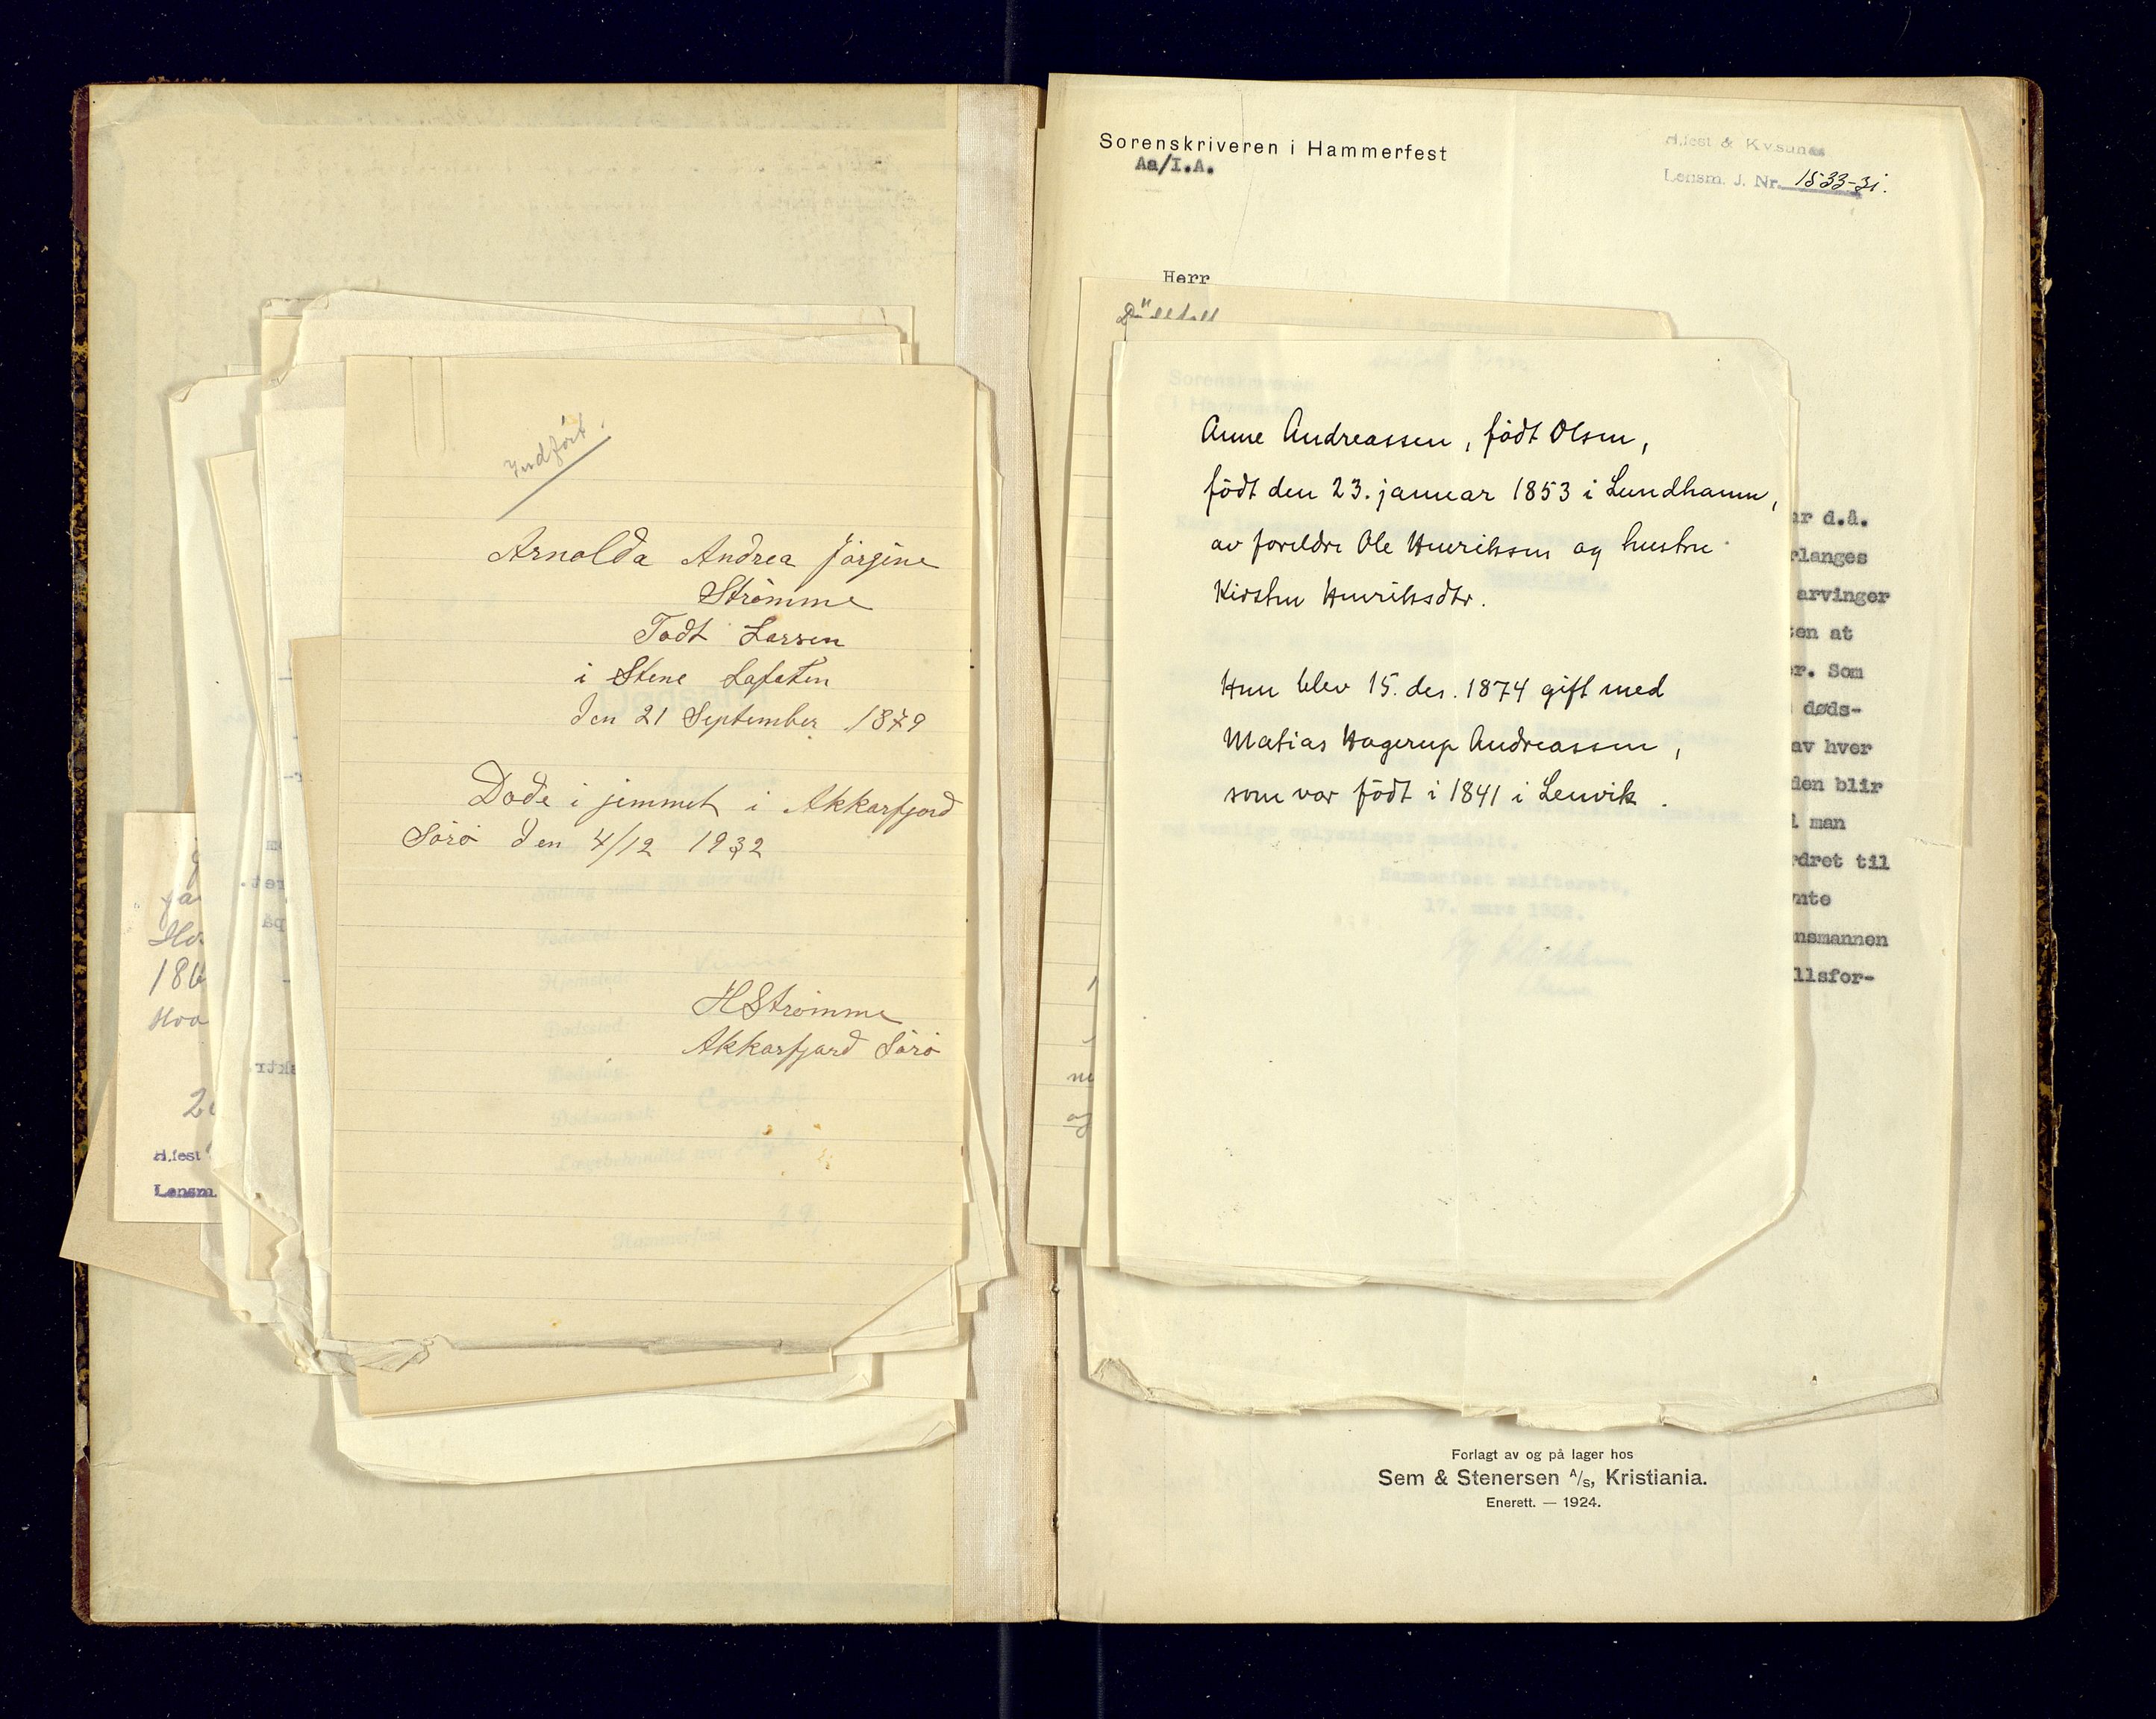 Indført.
Arnolda Andrea Jørgine
Strømme
Født Larsen
i Stene Lofoten
den 21 September 1879
Døde i jemmet i Akkarfjord
Sørø den 4/12 1932
HStrømme
Akkarfjord Sørø
186
H.fest
Lensm.
Sorenskriveren i Hammerfest
Aa/I.A.
H.fest & Kv.sunds
Lensm. J. Nr. 1533-31.
Herr
Anne Andreassen, født Olsen,
født den 23. januar 1853 i Lundhamn,
av foreldre Ole Henriksen og hustru
Kirsten Henriksdtr.
Hun blev 15. des. 1874 gift med
Matias Hagerup Andreassen,
som var født i 1841 i Lenvik.
ar d.å.
rlanges
arvinger
ten at
er. Som
døds-
av hver
den blir
l man
rdret til
mte
nsmannen
llsfor-
Forlagt av og på lager hos
Sem & Stenersen A/S, Kristiania.
Enerett. — 1924.